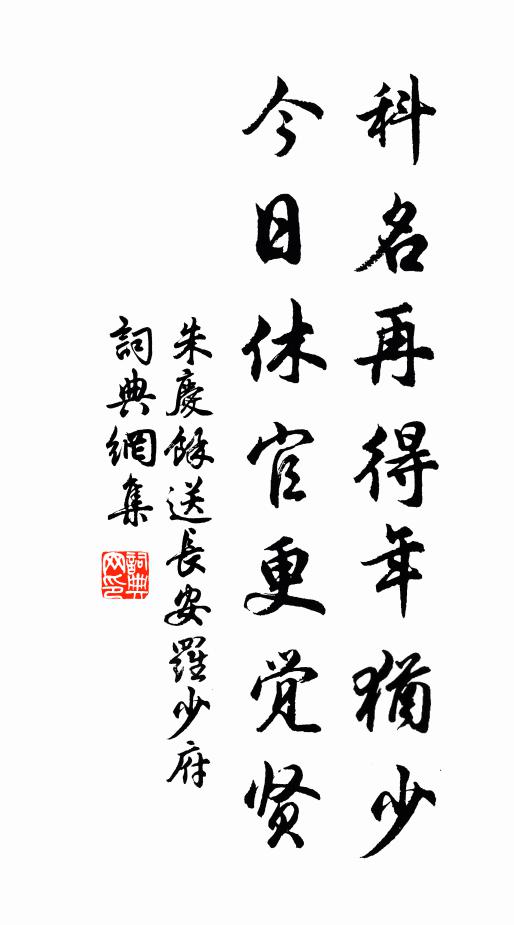 科名再得年猶少
今日休官更觉贤
朱慶餘送長安羅少府
詞典網集
詞典網印